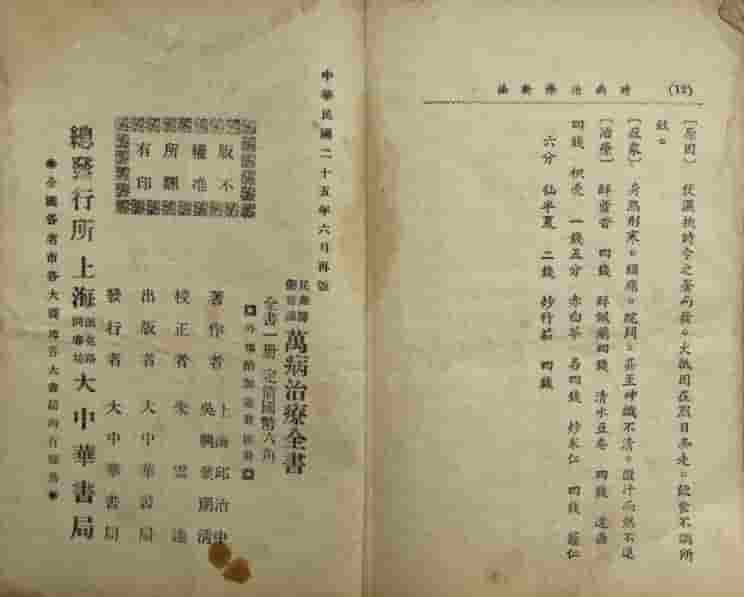 (12)
時病治療新論
〔原因〕 伏濕挾時令之暑而發。大抵因在烈日奔走。飲食不調所
致。
〔症象〕 身熱形寒。頭脹。脘悶。甚至神識不清。微汗而熱不退
〔治療〕 鮮藿香 四錢 鮮佩蘭四錢 清水豆卷 四錢 連翹
四錢 枳壳 一錢五分 赤白苓 各四錢 炒米仁 四錢 蔻仁
六分 仙半夏 二錢 炒竹茹 四錢
中華民國二十五年六月再版
萬病治療全書
全書一冊 定價國幣六角
外埠酌加運費匯費
著作者 上海邱治中 吳興葉瑚清
校正者 朱雲達
出版者 大中華書局
發行者 大中華書局
版權所有
不准翻印
總發行所上海大中華書局
全國各省市各大商埠各大書局均有經售